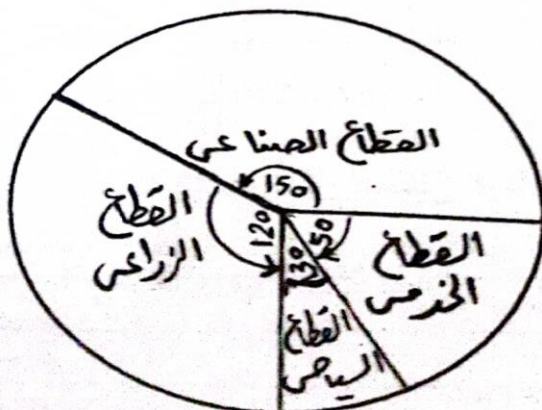 القطاع الصناعى
150
القطاع
الزراعى
120
30
50
القطاع
الخدمى
القطاع
السياحى